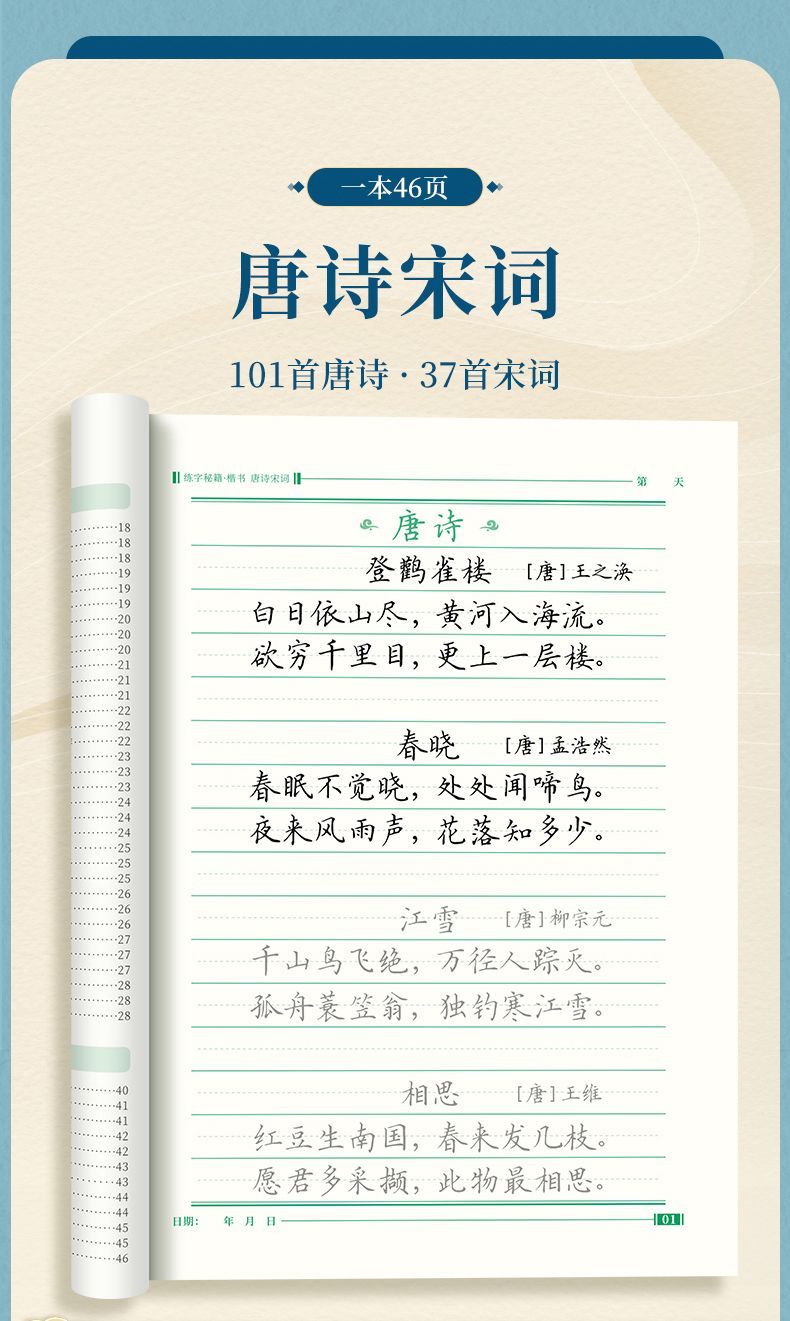 一本46页
唐诗宋词
101首唐诗·37首宋词
练字秘籍·楷书 唐诗宋词
第 天
唐诗
登鹳雀楼 [唐]王之涣
白日依山尽，黄河入海流。
欲穷千里目，更上一层楼。
春晓 [唐]孟浩然
春眠不觉晓，处处闻啼鸟。
夜来风雨声，花落知多少。
江雪 [唐]柳宗元
千山鸟飞绝，万径人踪灭。
孤舟蓑笠翁，独钓寒江雪。
相思 [唐]王维
红豆生南国，春来发几枝。
愿君多采撷，此物最相思。
日期： 年 月 日
01
18
18
18
19
19
19
20
20
20
21
21
21
22
22
22
23
23
23
24
24
24
25
25
25
26
26
26
27
27
27
28
28
28
40
41
41
42
42
43
43
44
44
45
45
46